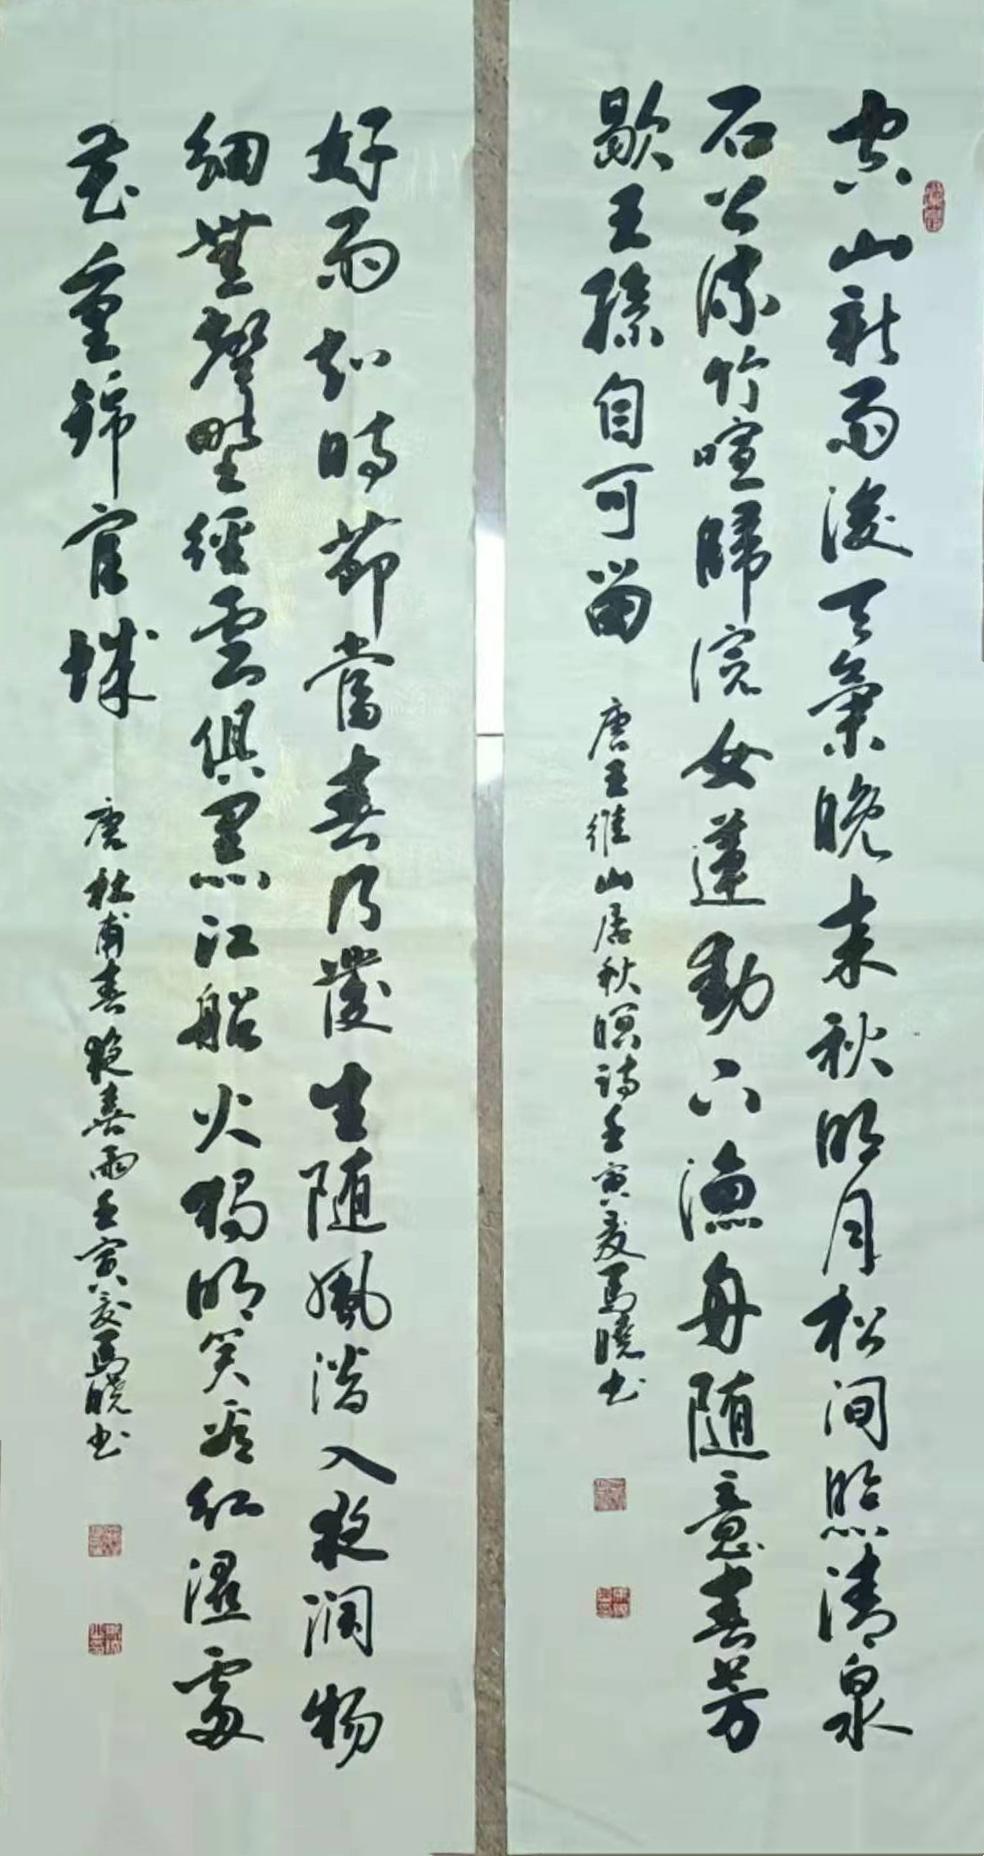 空山新雨後天氣晚来秋明月松间照清泉
石上流竹喧歸浣女蓮動下漁舟随意春芳
歇王孫自可留
唐王維山居秋暝詩壬寅夏馬曉书
好雨知時節當春乃發生随風潜入夜润物
細無聲野徑雲俱黑江船火獨明笑看红濕處
花重錦官城
唐杜甫春夜喜雨壬寅夏馬曉书